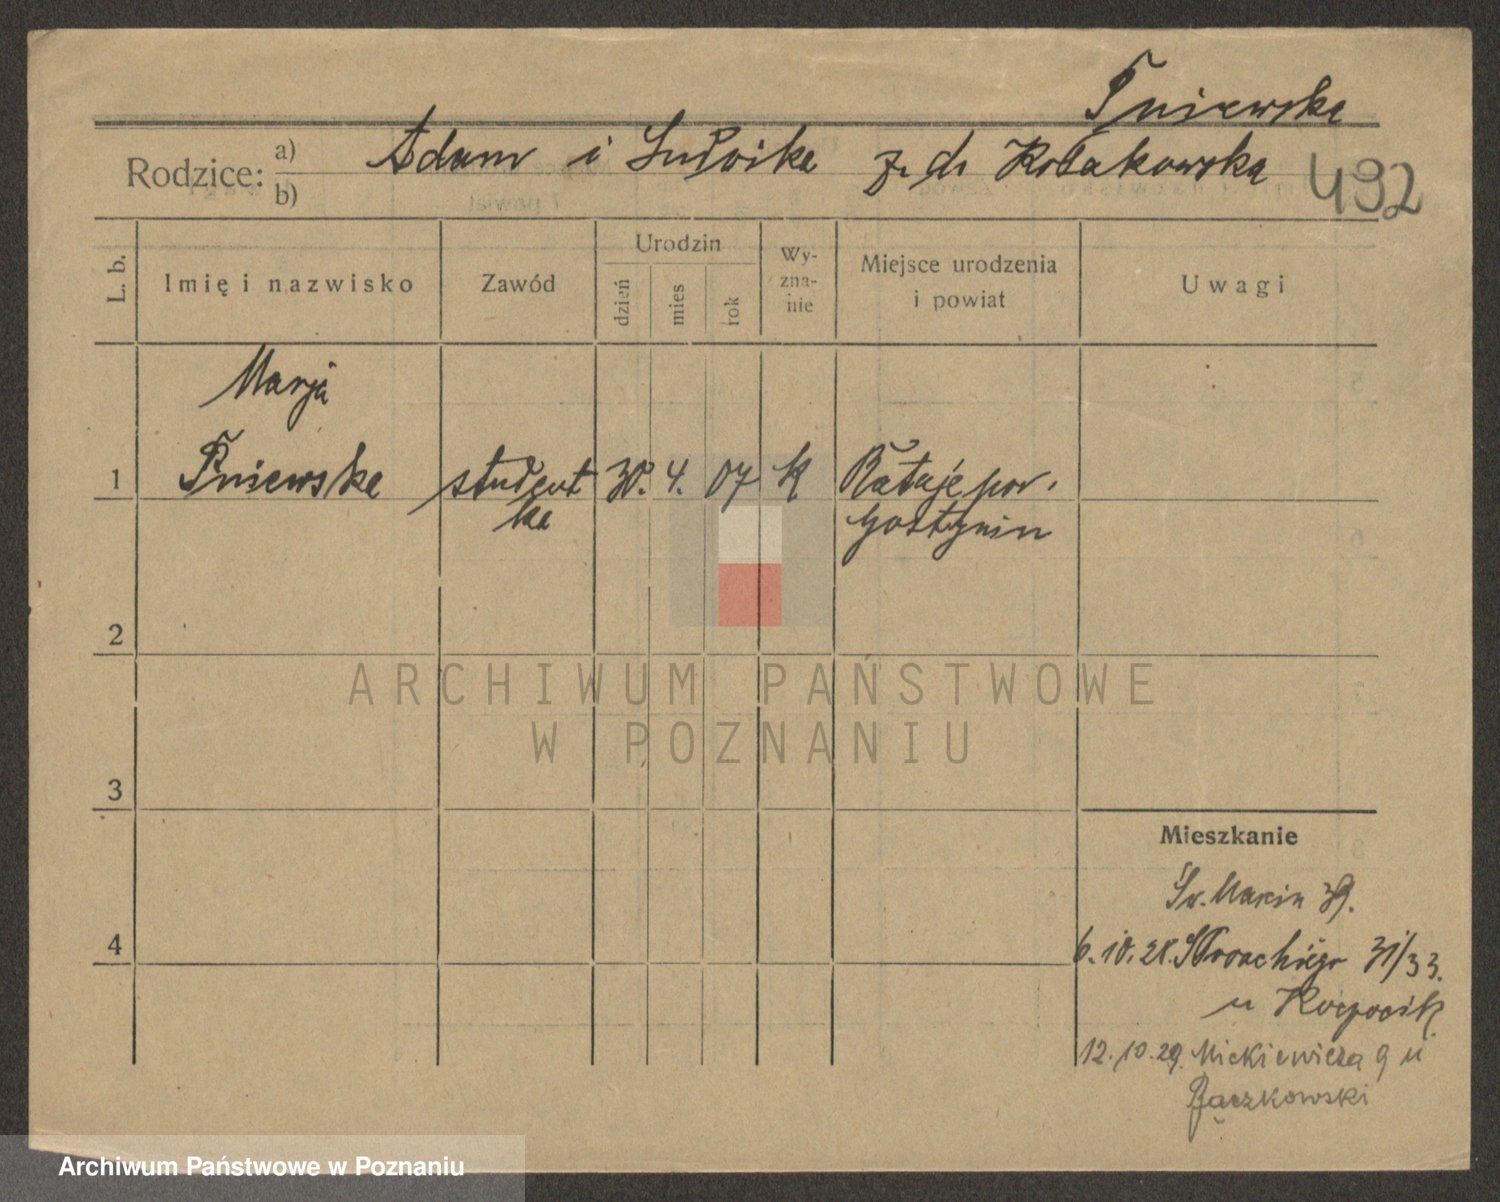 Pniewska
Rodzice: a) b) Adam i Ludwika z d. Kołakowska 492
L. b. Imię i nazwisko Zawód Urodzin dzień mies rok Wy-zna-nie Miejsce urodzenia i powiat Uwagi
Marja
1 Pniewska student 30. 4. 07 K Rataje pow.
ka Gostynin
2
ARCHIWUM PAŃSTWOWE
W POZNANIU
3
Mieszkanie
Św. Marcin 39.
4 6.10.28. 31/33.
u
12.10.29. Mickiewicza 9 u
Bączkowski
Archiwum Państwowe w Poznaniu